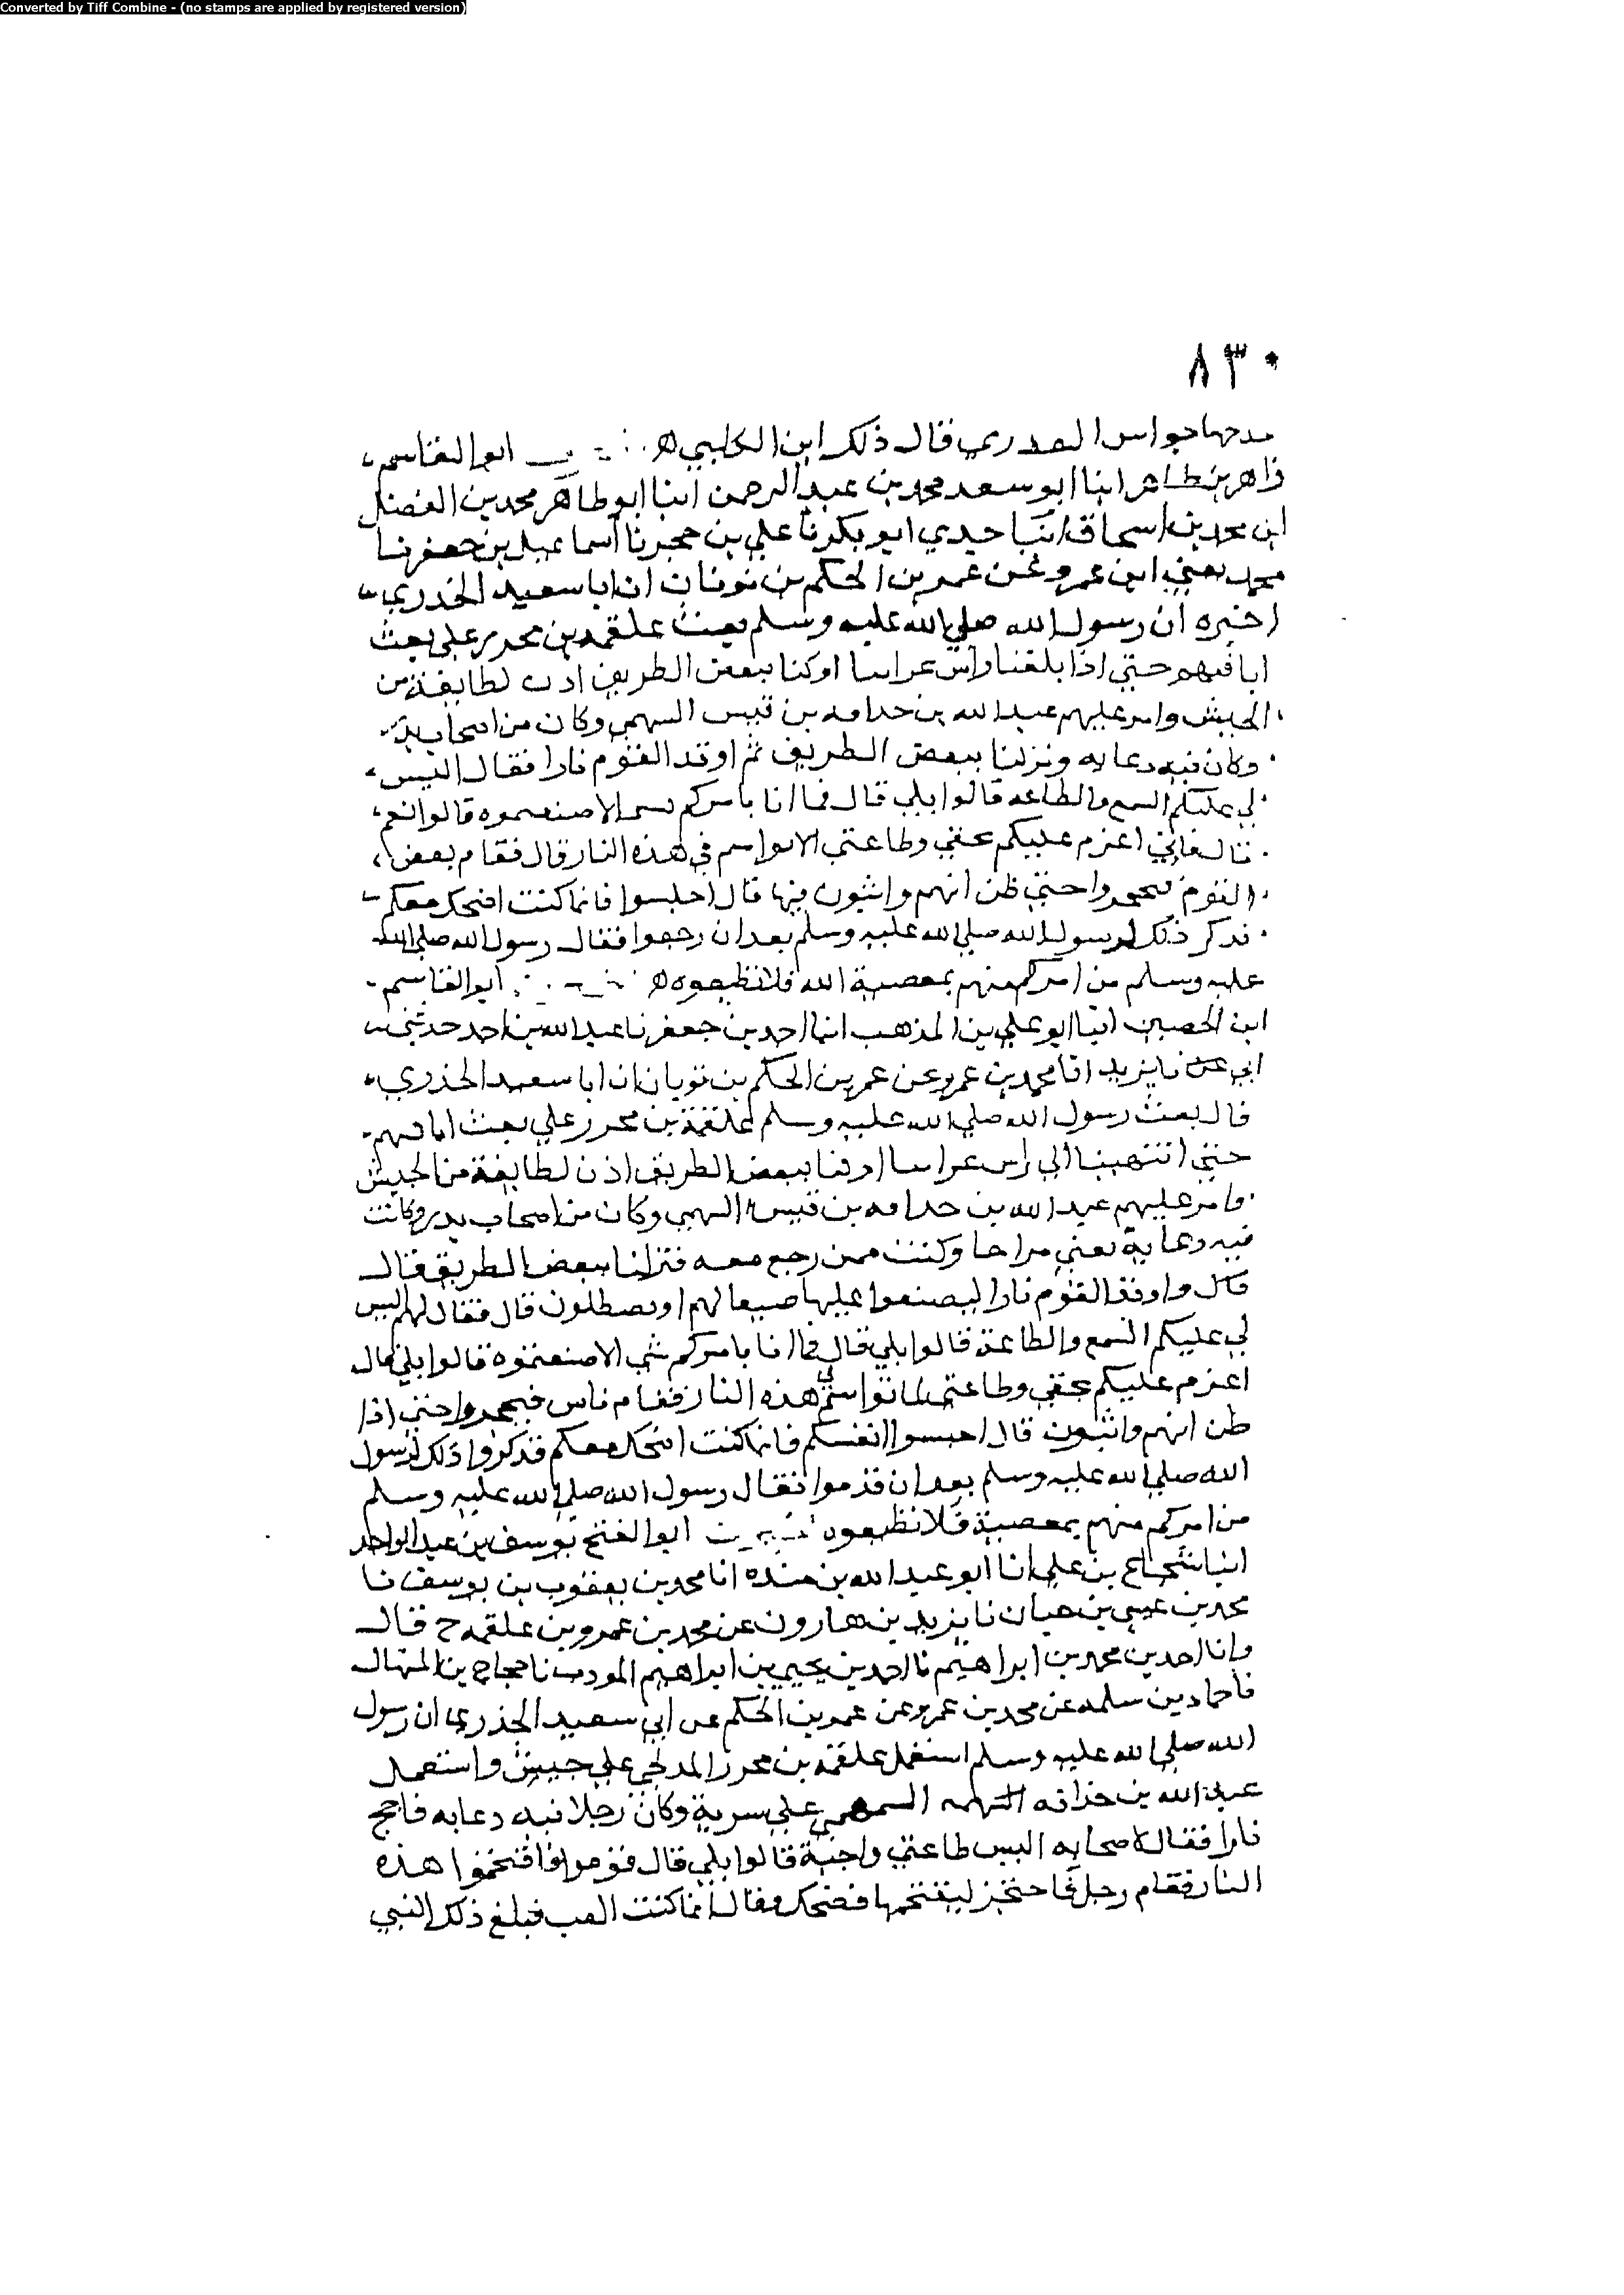 Converted by Tiff Combine - (no stamps are applied by registered version)
٨٣٠
مدحها جواس العدري قال ذلك ابن الكلبي ه ابو القاسم
زاهر بن طاهر انبا ابو سعد محمد بن عبد الرحمن انبا ابو طاهر محمد بن الفضل
ابن محمد بن اسحاق انبا جدي ابو بكر نا علي بن حجر نا اسماعيل بن جعفر نا
محمد يعني ابن عمرو عن عمر بن الحكم بن ثوبان ان ابا سعيد الخدري
اخبره ان رسول الله صلي الله عليه وسلم بعث علقمه بن محرز علي بعث
انا فيهم حتي اذا بلغنا راس عراسا او كنا ببعض الطريق اذن لطايفة من
الجيش وامر عليهم عبد الله بن حدافه بن قيس السهمي وكان من اصحاب بدر
وكان فيه دعابه ونزلنا ببعض الطريق ثم اوقد القوم نارا فقال اليس
لي عليكم السمع والطاعه قالوا بلي قال فما انا بامركم بسي الا صنعتموه قالوا نعم
قال فاني اعزم عليكم بحقي وطاعتي الا تواسم في هذه النار قال فقام بعض
القوم فحجروا حتي ظن انهم واثبون فيها قال اجلسوا فانما كنت اضحك معكم
فذكر ذلك لرسول الله صلي الله عليه وسلم بعد ان رجعوا فقال رسول الله صلي الله
عليه وسلم من امركم منهم بمعصية الله فلا تطيعوه ه ابو القاسم
ابن الحصين انبا ابو علي بن المذهب انبا احمد بن جعفر نا عبد الله بن احمد حدثني
ابي نا يزيد انا محمد بن عمرو عن عمر بن الحكم بن ثوبان ان ابا سعيد الخدري
قال بعث رسول الله صلي الله عليه وسلم علقمة بن محرز علي بعث انا فيهم
حتي انتهينا الي راس عراسا او كنا ببعض الطريق اذن لطايفة من الجيش
وامر عليهم عبد الله بن حدافه بن قيس السهمي وكان من اصحاب بدر وكانت
فيه دعابة يعني مزاحا وكنت ممن رجع معه فنزلنا ببعض الطريق فقال
قال واوقد القوم نارا ليصنعوا عليها صنيعا لهم او يصطلون قال فقال لهم اليس
لي عليكم السمع والطاعة قالوا بلي قال فما انا بامركم بشي الا صنعتموه قالوا بلي قال
اعزم عليكم بحقي وطاعتي لما تواثبتم في هذه النار فقام ناس فتحجروا حتي اذا
ظن انهم واثبون قال احبسوا انفسكم فانما كنت اضحك معكم فذكروا ذلك لرسول
الله صلي الله عليه وسلم بعد ان قدموا فقال رسول الله صلي الله عليه وسلم
من امركم منهم بمعصية فلا تطيعوه ابو الفتح يوسف بن عبد الواحد
انبا شجاع بن علي انا ابو عبد الله بن منده انا محمد بن يعقوب بن يوسف نا
محمد بن عيسي بن حيان نا يزيد بن هارون عن محمد بن عمرو بن علقمه ح قال
وانا احمد بن محمد بن ابراهيم نا احمد بن يحيي بن ابراهيم المودب نا حجاج بن المنهال
نا حماد بن سلمه عن محمد بن عمرو عن عمر بن الحكم عن ابي سعيد الخدري ان رسول
الله صلي الله عليه وسلم استعمل علقمه بن محرز المدلجي علي جيش واستعمل
عبد الله بن حذافه السهمي علي سرية وكان رجلا فيه دعابه فاجج
نارا فقال لاصحابه اليس طاعتي واجبة قالوا بلي قال فقوموا فاقتحموا هذه
النار فقام رجل فاحتجز ليقتحمها فضحك وقال انما كنت العب فبلغ ذلك النبي